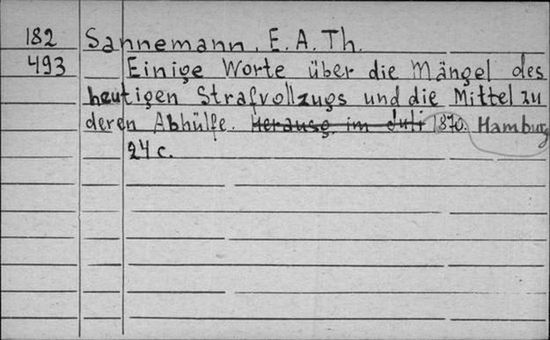 182 Sannemann, E. A. Th.
493 Einige Worte über die Mängel des
heutigen Strafvollzugs und die Mittel zu
deren Abhülfe. Herausg. im Juli 1870. Hamburg
24 c.